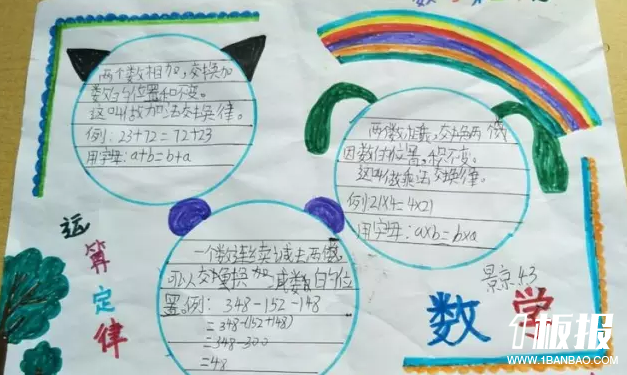 两个数相加,交换加
数的位置和不变。
这叫做加法交换律。
例:23+72=72+23
用字母:a+b=b+a
两数相乘,交换两个
因数的位置,积不变。
这叫做乘法交换律。
例:21×4=4×21
用字母:a×b=b×a
一个数连续减去两个数
可以交换 减数的位
置。例:348-152-148
=348-(152+148)
=348-300
=48
运算定律
数学
板报
WWW.1BANBAO.COM